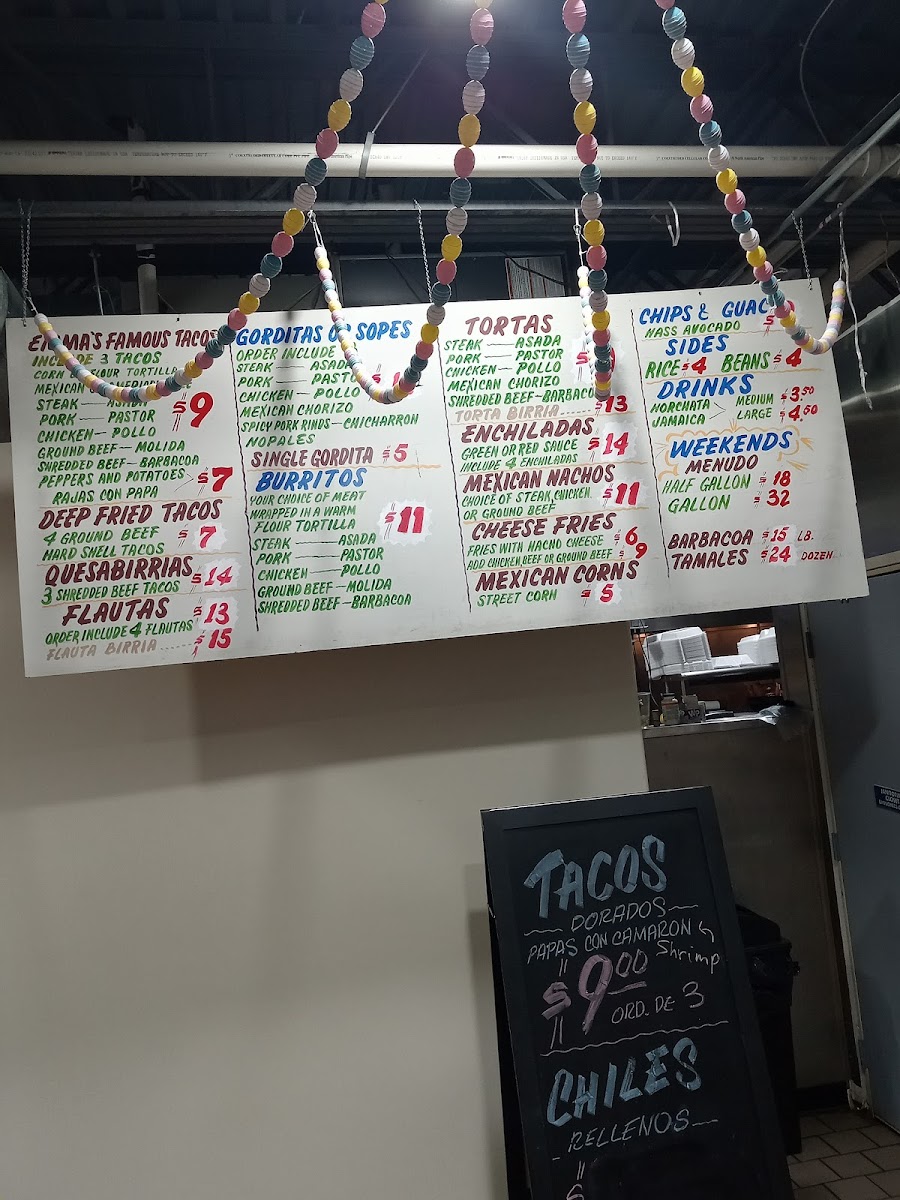 FAMOUS TACOS
INCLUDE 3 TACOS
CORN FLOUR TORTILLA
MEXICAN
STEAK
PORK — PASTOR
CHICKEN — POLLO
$9
GROUND BEEF — MOLIDA
SHREDDED BEEF — BARBACOA
PEPPERS AND POTATOES > $7
RAJAS CON PAPA
DEEP FRIED TACOS
4 GROUND BEEF $7
HARD SHELL TACOS
QUESABIRRIAS $14
3 SHREDDED BEEF TACOS
FLAUTAS $13
ORDER INCLUDE 4 FLAUTAS
FLAUTA BIRRIA ------- $15
GORDITAS SOPES
ORDER INCLUDE
STEAK — ASADA
PORK — PASTOR
CHICKEN — POLLO
MEXICAN CHORIZO
SPICY PORK RINDS — CHICHARRON
NOPALES
SINGLE GORDITA $5
BURRITOS
YOUR CHOICE OF MEAT
WRAPPED IN A WARM
FLOUR TORTILLA
$11
STEAK — ASADA
PORK — PASTOR
CHICKEN — POLLO
GROUND BEEF — MOLIDA
SHREDDED BEEF — BARBACOA
TORTAS
STEAK — ASADA
PORK — PASTOR
CHICKEN — POLLO
MEXICAN CHORIZO
SHREDDED BEEF — BARBACOA
TORTA BIRRIA ------- $13
ENCHILADAS
GREEN OR RED SAUCE $14
INCLUDE 4 ENCHILADAS
MEXICAN NACHOS
CHOICE OF STEAK, CHICKEN, $11
OR GROUND BEEF
CHEESE FRIES
FRIES WITH NACHO CHEESE $6
ADD CHICKEN, BEEF OR GROUND BEEF $9
MEXICAN CORNS
STREET CORN $5
CHIPS & GUAC
HASS AVOCADO
SIDES
RICE $4 BEANS $4
DRINKS
HORCHATA > MEDIUM $3.50
JAMAICA LARGE $4.50
WEEKENDS
MENUDO
HALF GALLON $18
GALLON $32
BARBACOA $15 LB.
TAMALES $24 DOZEN
TACOS
— DORADOS —
PAPAS CON CAMARON
Shrimp
$9.00
ORD. DE 3
CHILES
- RELLENOS -